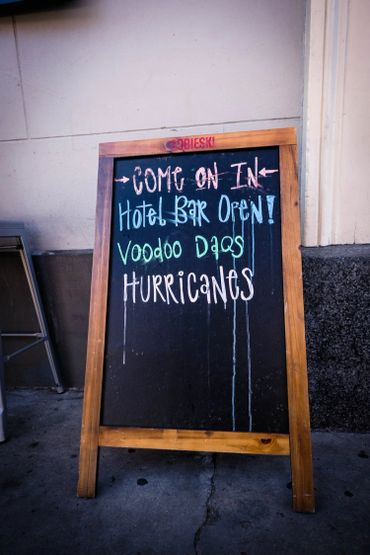 SOBIESKI
→COME ON IN←
HOTEL BAR OPEN!
VOODOO DAQS
HURRICANES